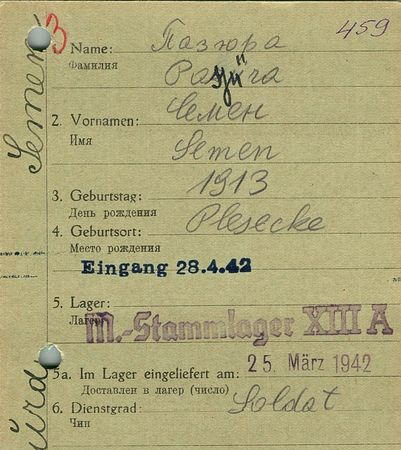 3
459
1. Name: Пазюра
Фамилия
2. Vornamen: Семен
Имя
Semen
3. Geburtstag: 1913
День рождения
4. Geburtsort: Plesecke
Место рождения
Eingang 28.4.42
5. Lager:
Лагерь
M.-Stammlager XIII A
5a. Im Lager eingeliefert am: 25. März 1942
Доставлен в лагерь (число)
6. Dienstgrad: Soldat
Чин
Semen